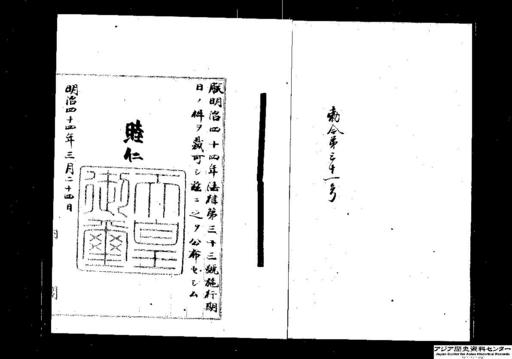 勅令第三十一号
朕明治四十四年法律第三十三號施行期
日ノ件ヲ裁可シ玆ニ之ヲ公布セシム
睦仁
天皇御璽
明治四十四年三月二十四日
内閣
アジア歴史資料センター
Japan Center for Asian Historical Records